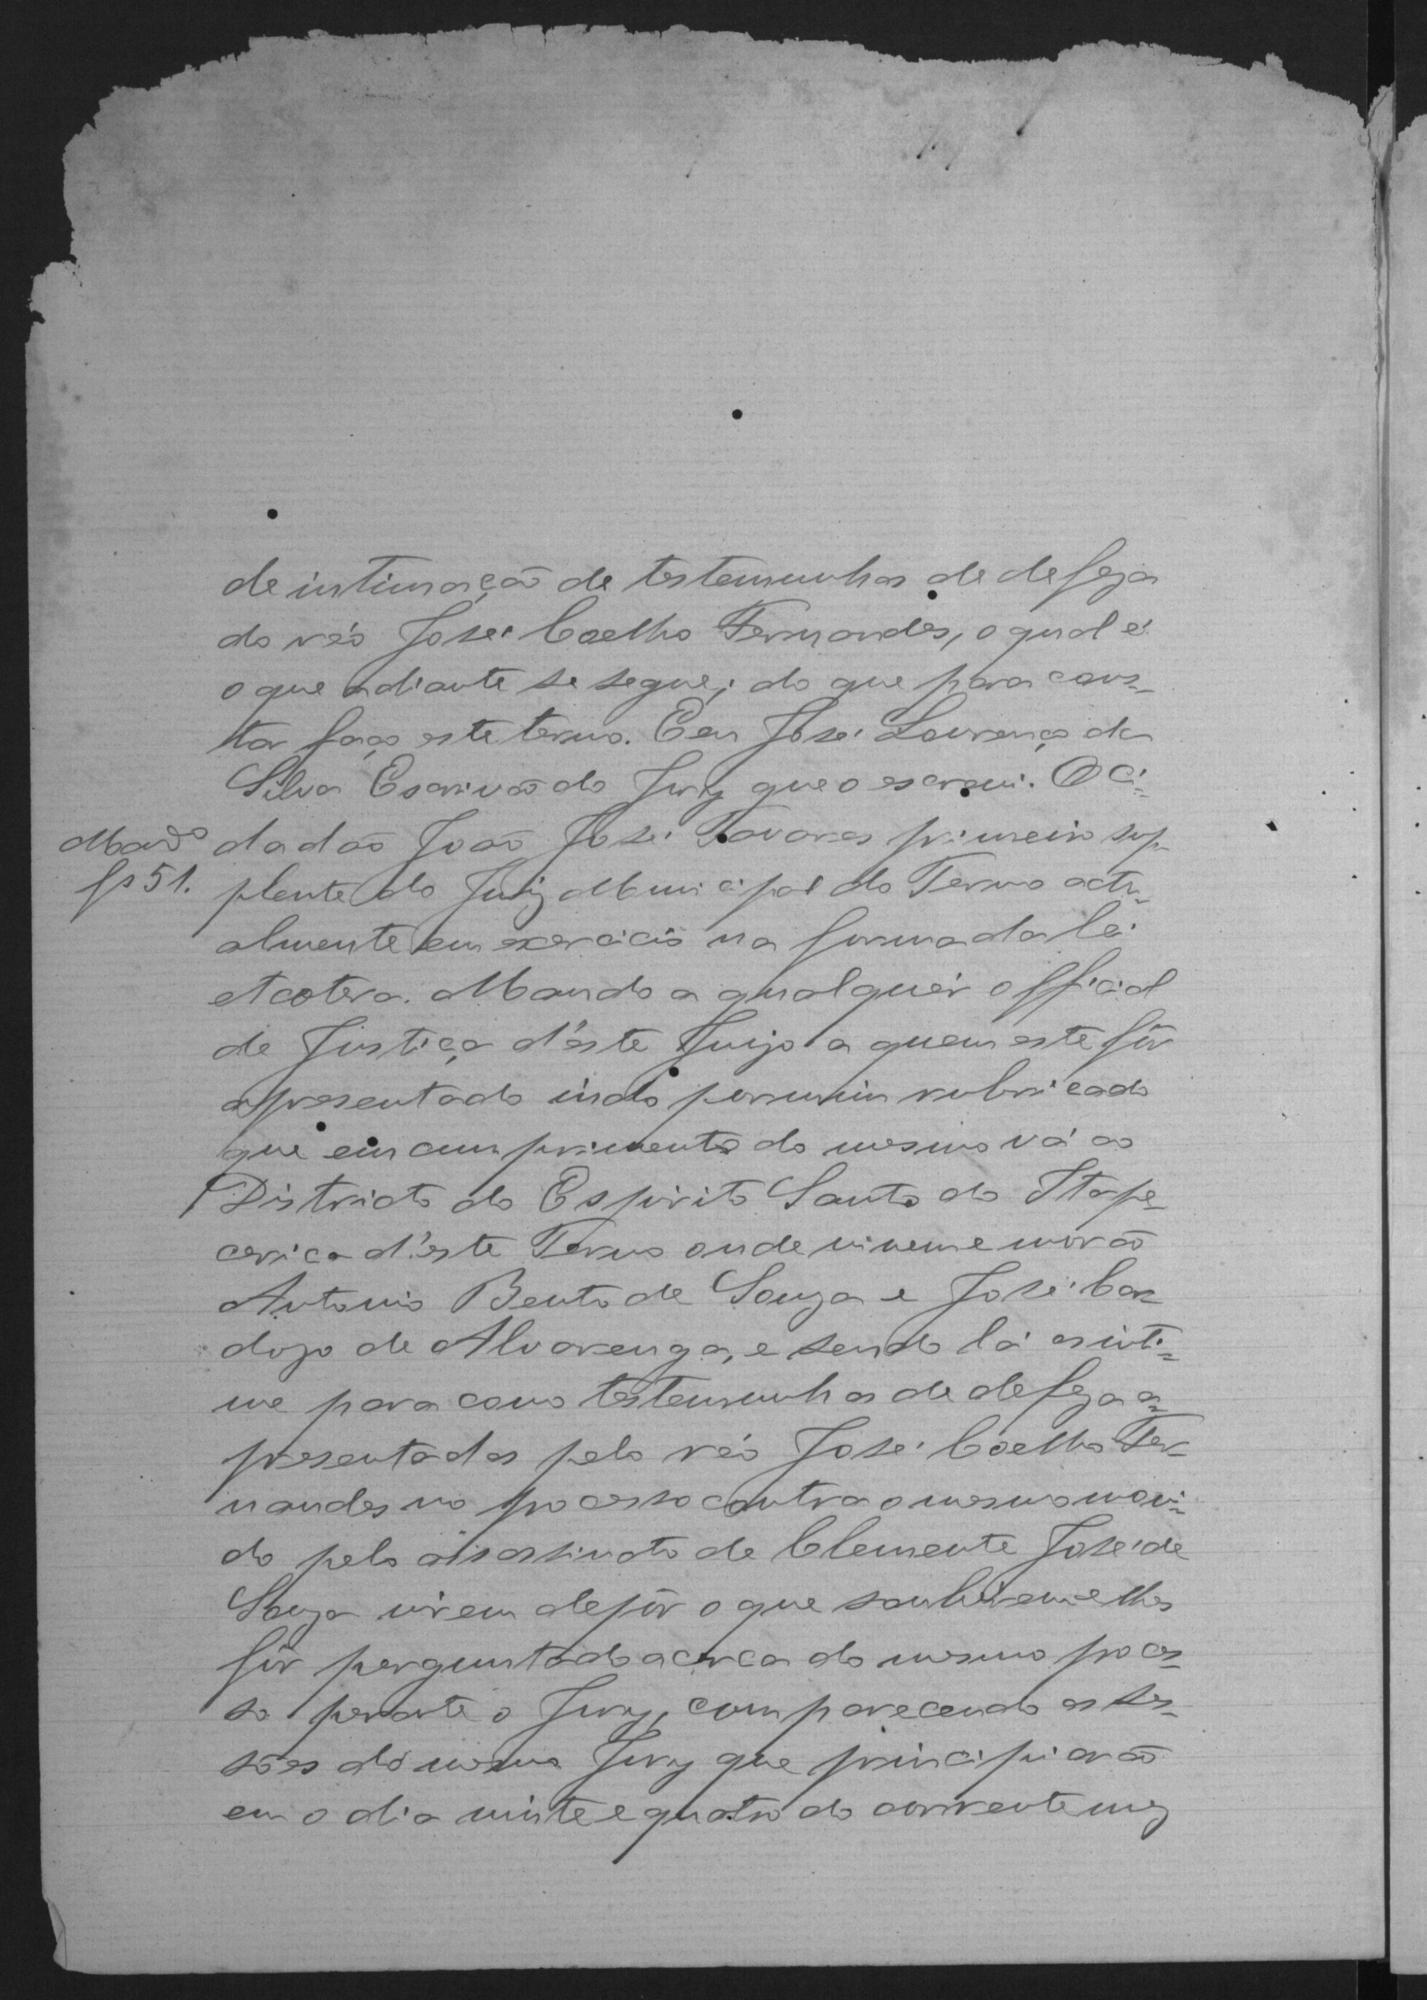 de intimação de testemunhas de defeza
do réo José Coelho Fernandes, o qual é
o que adiante se segue; do que para cons=
tar faço este termo. Eeu José Lourenço da
Silva Escrivão do Jury que o escrevi. O Ci=
Mando
fs 51.
dadão João José Tavares primeiro sup=
plente do Juiz Municipal do Termo actu=
almente em exercicio na forma da lei
etcetera. Mando a qualquer official
de Justiça d'este Juizo a quem este fôr
apresentado indo por mim rubricado
que em cumprimento do mesmo vá ao
Districto do Espirito Santo do Itape=
cerica d'este Termo onde vivem e morão
Antonio Bento de Souza e José Car=
dozo de Alvarenga, e sendo lá os inti=
me para como testemunhas de defeza a=
presentadas pelo réo José Coelho Fer=
nandes no processo contra o mesmo movi=
do pelo assassinato de Clemente José de
Souza virem depôr o que souberem e lhes
fôr perguntado acerca do mesmo proces=
so perante o Jury, comparecendo as ses=
sões do mesmo Jury que principiarão
em o dia vinte e quatro do corrente mez